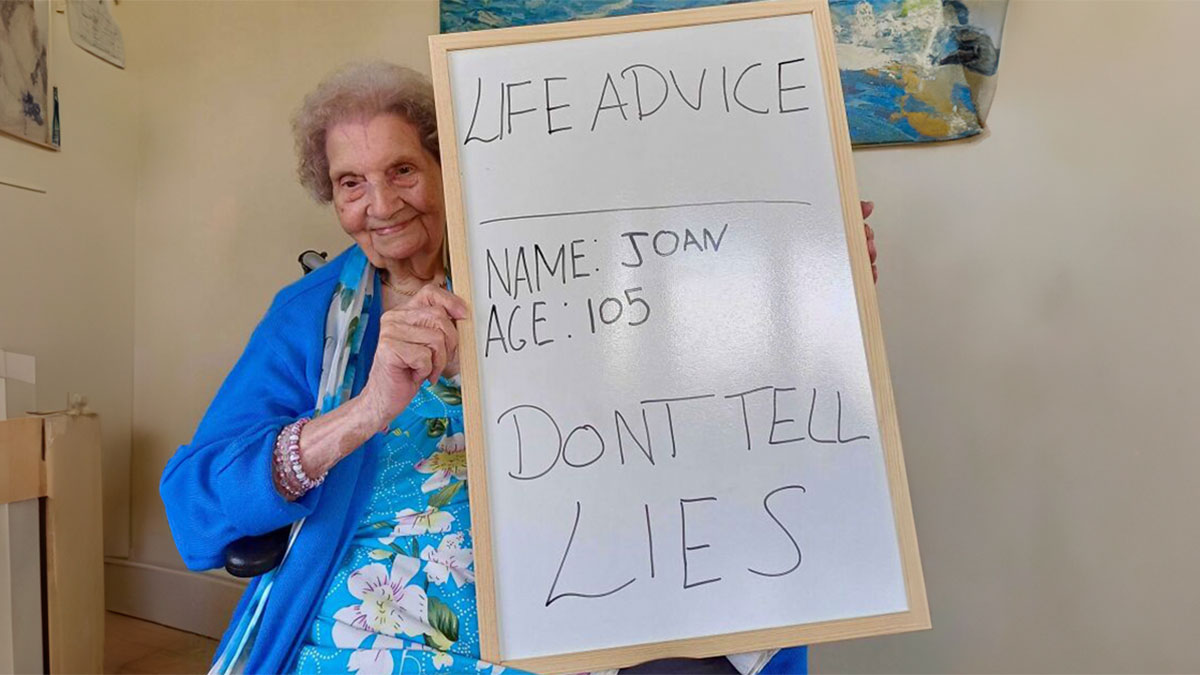 LIFE ADVICE
NAME: JOAN
AGE: 105
DONT TELL
LIES